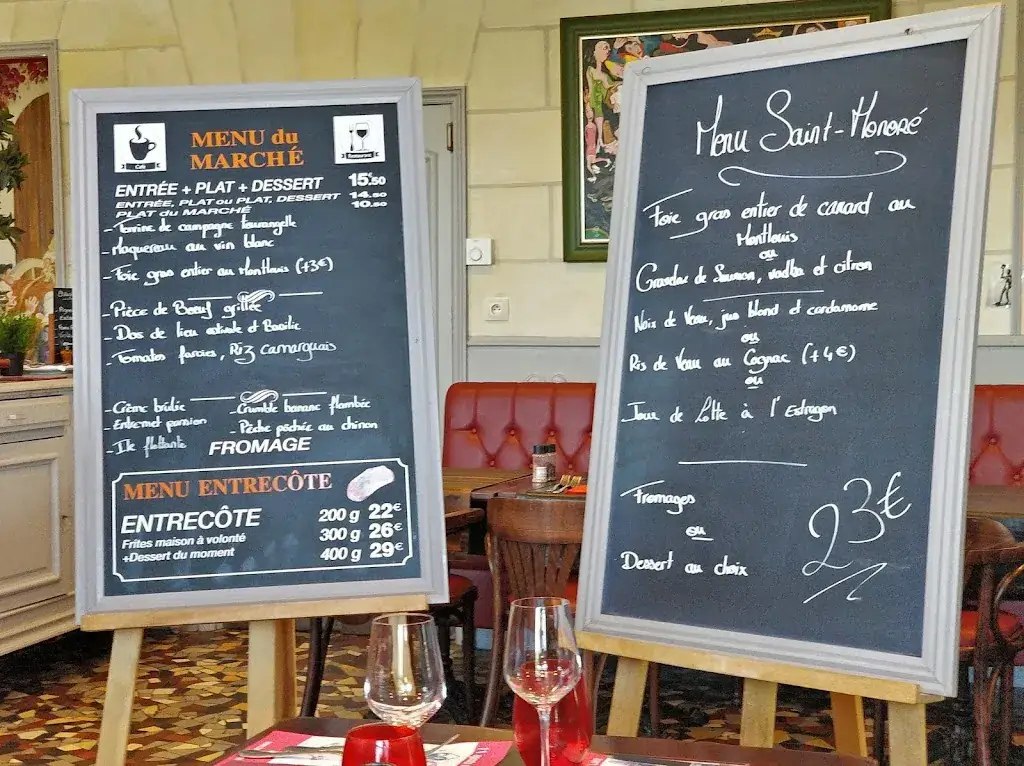 MENU du
MARCHÉ
Café
Restaurant
ENTRÉE + PLAT + DESSERT 15€50
ENTRÉE, PLAT ou PLAT, DESSERT 14.50
PLAT du MARCHÉ 10.50
- Terrine de campagne tourangelle
- Maquereau au vin blanc
- Foie gras entier au Montlouis (+3€)
- Pièce de Boeuf grillée
- Dos de lieu estivale et Basilic
- Tomates farcies, Riz camarguais
- Crème brûlée
- Entremet passion
- Ile flottante
- Crumble banane flambée
- Pêche pêchée au chinon
FROMAGE
MENU ENTRECÔTE
ENTRECÔTE
Frites maison à volonté
+Dessert du moment
200 g 22€
300 g 26€
400 g 29€
Menu Saint-Honoré
Foie gras entier de canard au
Montlouis
ou
Gravelax de Saumon, vodka et citron
Noix de Veau, jus blond et cardamome
ou
Ris de Veau au Cognac (+4€)
ou
Joue de Lotte à l'Estragon
Fromages
ou
Dessert au choix
23€